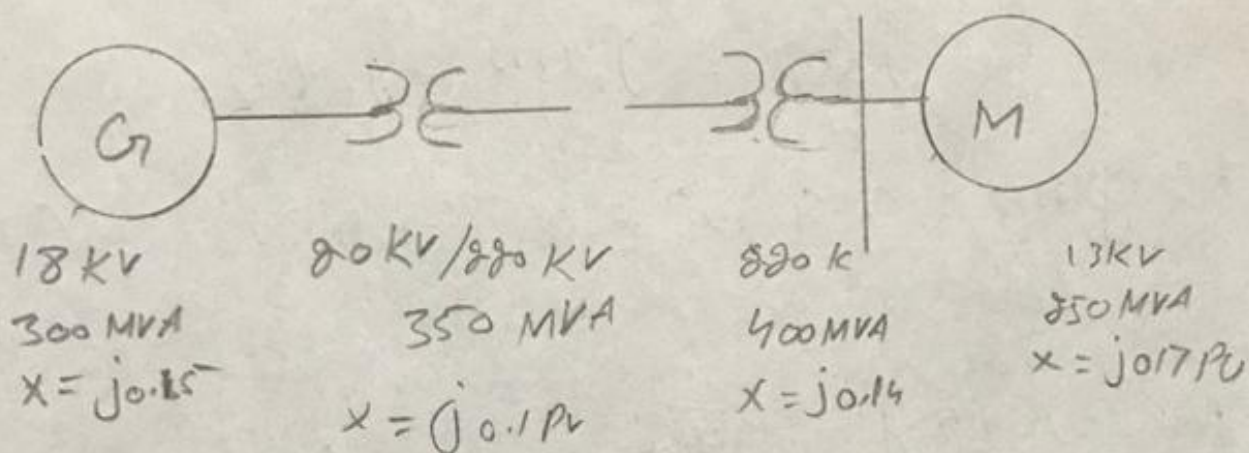 G
M
18 KV
300 MVA
x = j0.15
20 KV/220 KV
350 MVA
x = j0.1 PU
220 K
400 MVA
x = j0.14
13 KV
250 MVA
x = j017 PU